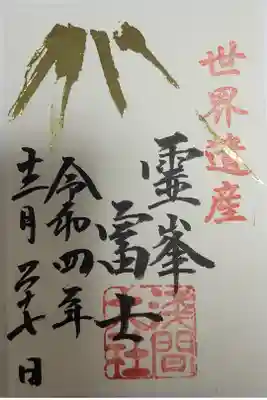 世界遺産
靈峯
富士
淺間大社
令和四年
十二月二十七日